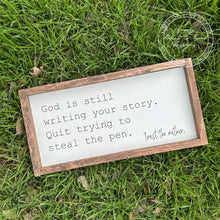 God is still
writing your story.
Quit trying to
steal the pen.
trust the author.